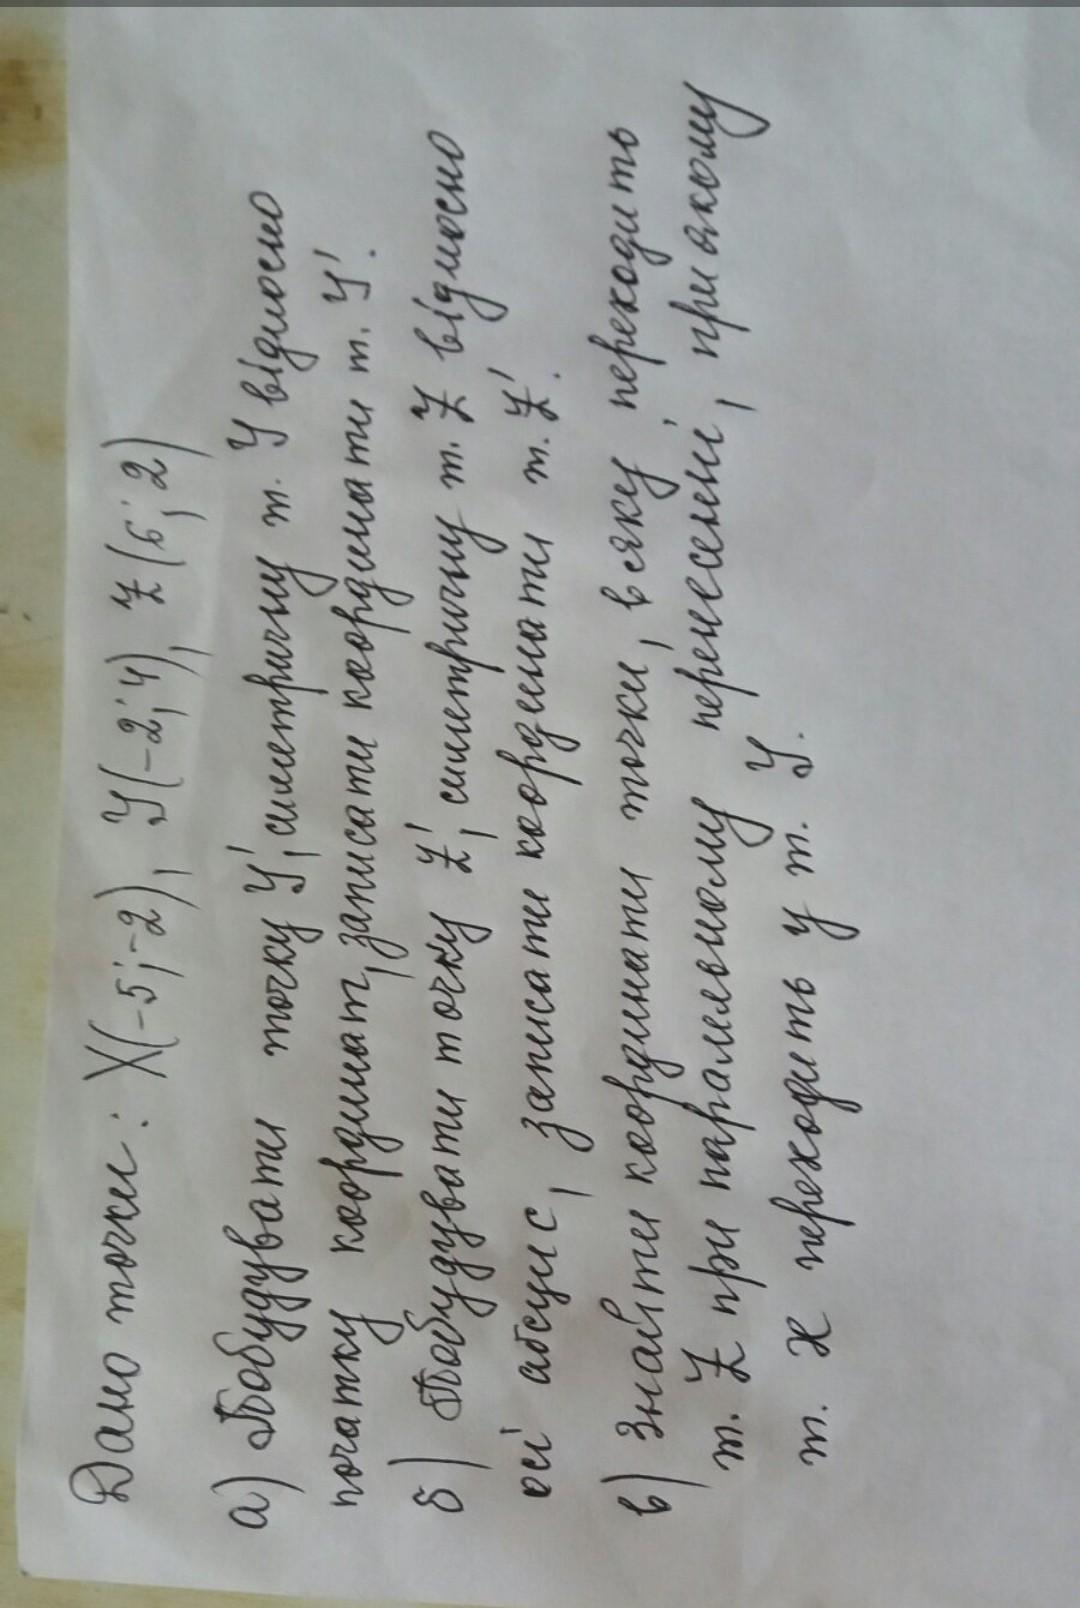 Дано точки: X(-5;-2), У(-2;4), Z(6;2)
а) Побудувати точку У', симетричну т. У відносно
початку координат, записати координати т. У'.
б) Побудувати точку Z', симетричну т. Z відносно
осі абсцис, записати координати т. Z'.
в) Знайти координати точки, в яку переходить
т. Z при паралельному перенесенні, при якому
т. х переходить у т. У.